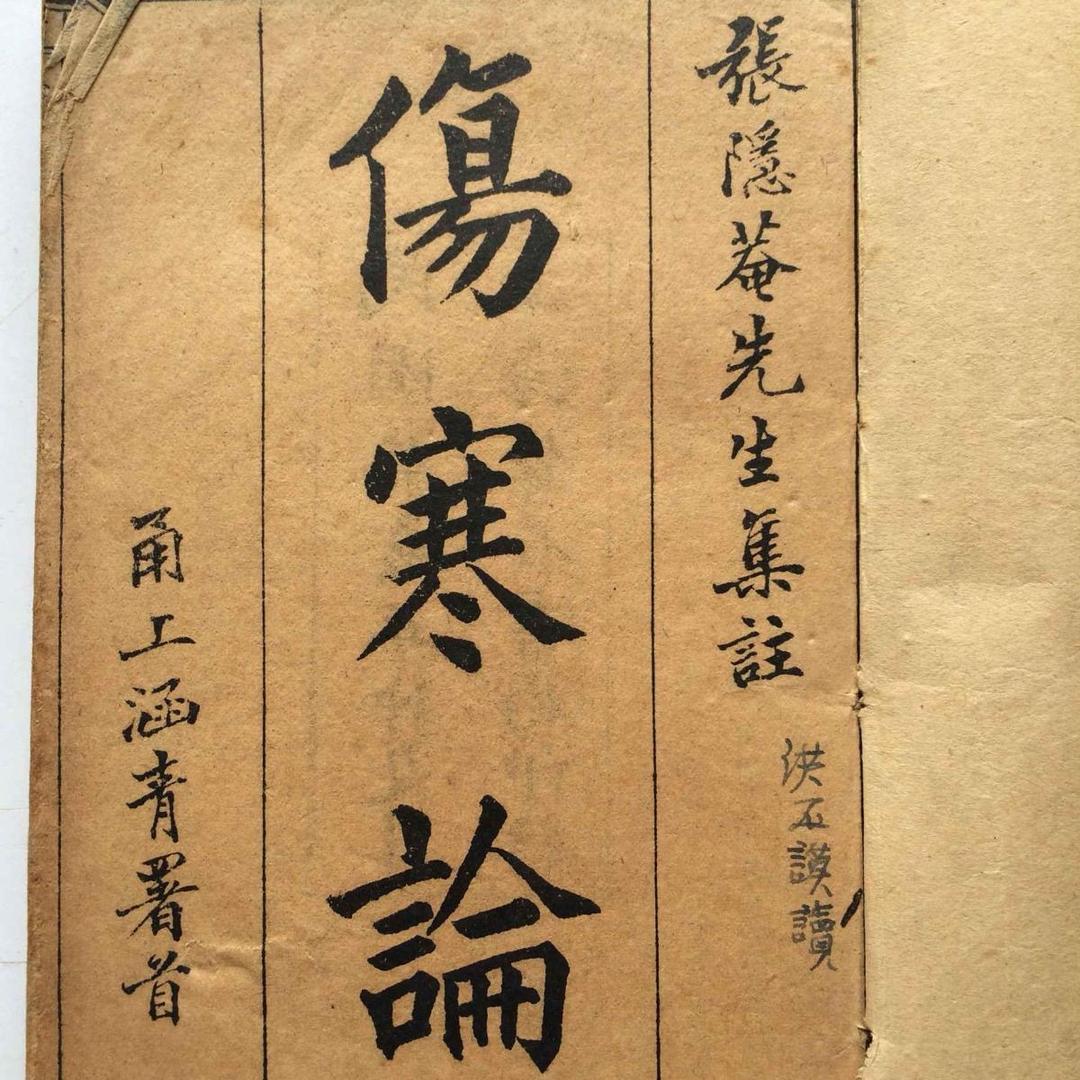 張隱菴先生集註
洪丕謨讀
傷寒論
甬上涵青署首